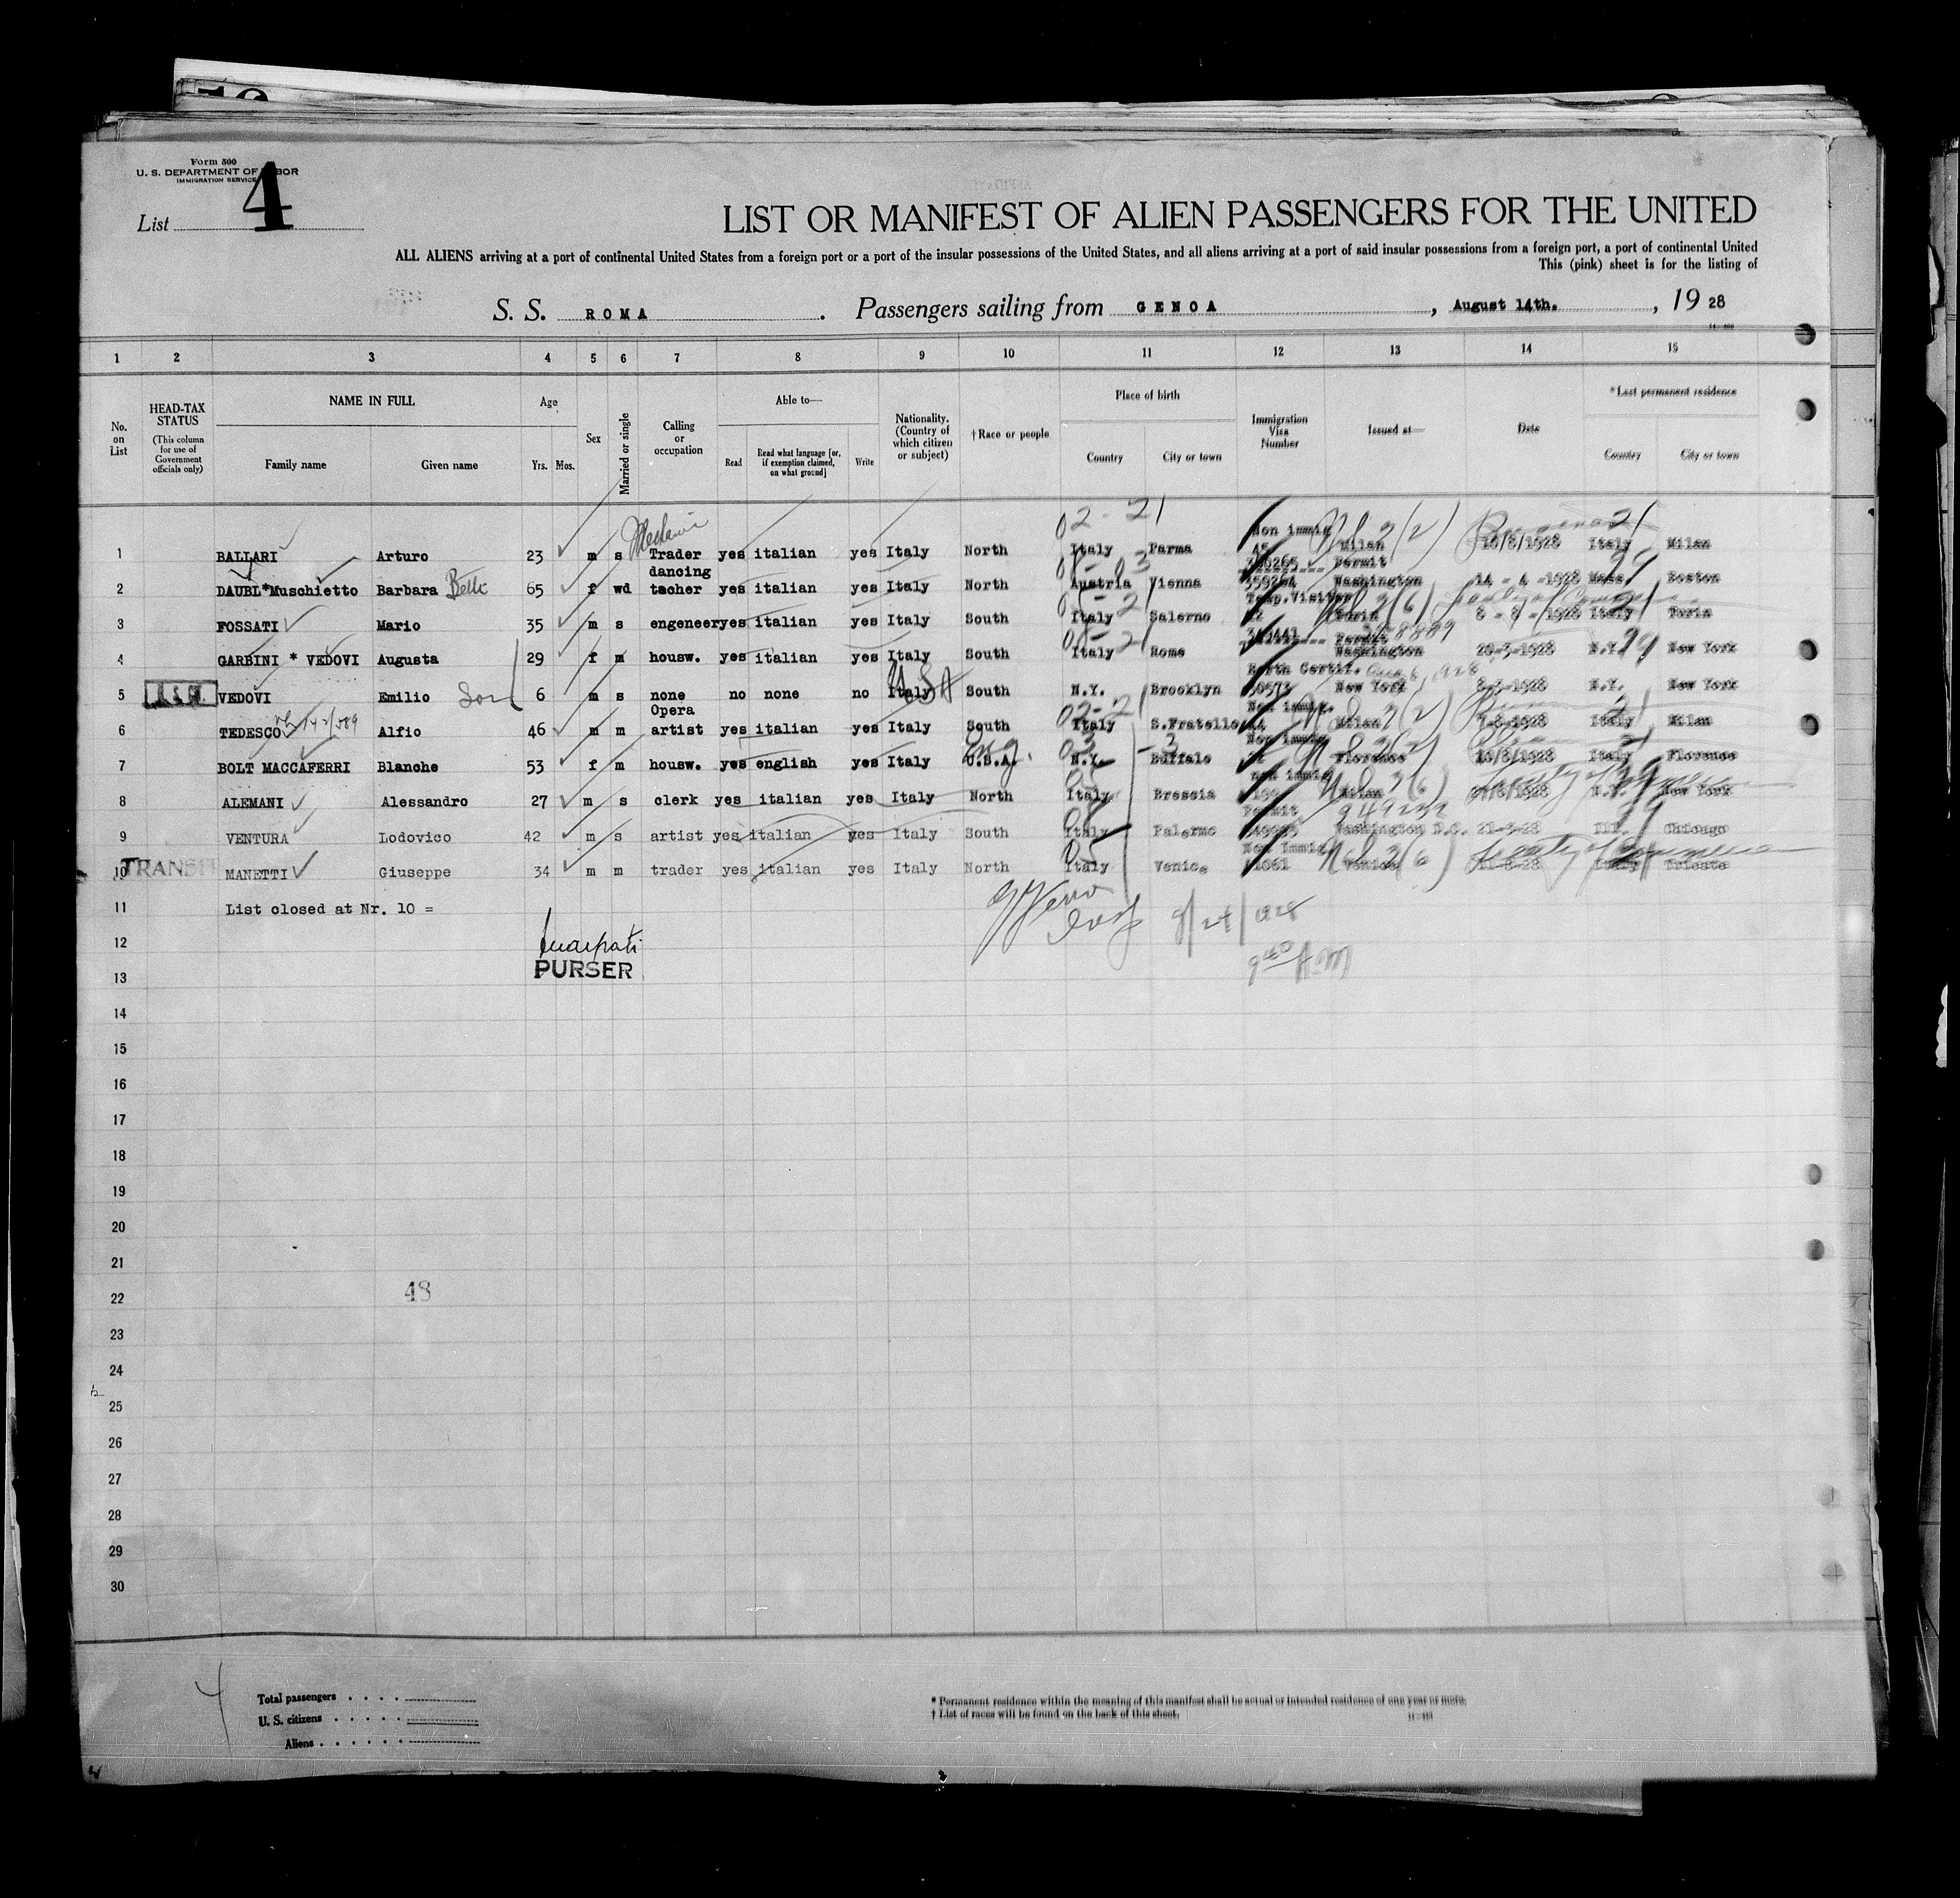 Form 500
U. S. DEPARTMENT OF LABOR
IMMIGRATION SERVICE
List 4
LIST OR MANIFEST OF ALIEN PASSENGERS FOR THE UNITED
ALL ALIENS arriving at a port of continental United States from a foreign port or a port of the insular possessions of the United States, and all aliens arriving at a port of said insular possessions from a foreign port, a port of continental United
This (pink) sheet is for the listing of
S. S. ROMA. Passengers sailing from GENOA, August 14th., 19 28
1 2 3 4 5 6 7 8 9 10 11 12 13 14 15
No. on List
HEAD-TAX STATUS (This column for use of Government officials only)
NAME IN FULL Family name Given name
Age Yrs. Mos.
Sex
Married or single
Calling or occupation
Able to— Read Read what language [or, if exemption claimed, on what ground] Write
Nationality. (Country of which citizen or subject)
†Race or people
Place of birth Country City or town
Immigration Visa Number
Issued at—
Date
*Last permanent residence Country City or town
02-21 Non immig
Mechanic
1 BALLARI Arturo 23 m s Trader yes italian yes Italy North Italy Parma 45 Milan 10/8/1928 Italy Milan
dancing Permit
2 DAUBL*Muschietto Barbara Belle 65 f wd tacher yes italian yes Italy North Austria Vienna Washington 14 - 4 -1928 Mass Boston
Temp.Visitor
3 FOSSATI Mario 35 m s engeneer yes italian yes Italy South Italy Salerno Turin 8 - 8 - 1928 Italy Turin
Permit
4 GARBINI * VEDOVI Augusta 29 f m housw. yes italian yes Italy South Italy Rome Washington 20-3-1928 N.Y. New York
Birth Certif. Aug 6, 1928
5 VEDOVI Emilio Son 6 m s none no none no Italy USA South N.Y. Brooklyn 50573 New York N.Y. New York
Opera Non immig.
6 TEDESCO Alfio 46 m m artist yes italian yes Italy South Italy S.Fratello Milan 7-8-1928 Italy Milan
Non immig
7 BOLT MACCAFERRI Blanche 53 f m housw. yes english yes Italy U.S.A. N.Y. Buffalo Florence 10/8/1928 Italy Florence
non immig
8 ALEMANI Alessandro 27 m s clerk yes italian yes Italy North Italy Brescia Milan N.Y. New York
Permit 949232
9 VENTURA Lodovico 42 m s artist yes italian yes Italy South Italy Palermo Washington D.C. 21-3-28 Ill. Chicago
Non Immig
TRANSIT
10 MANETTI Giuseppe 34 m m trader yes italian yes Italy North Italy Venice Venice 11-8-28 Italy Trieste
11 List closed at Nr. 10 =
8/24/1928
12
9 40 AM
PURSER
13
14
15
16
17
18
19
20
21
48
22
23
24
25
26
27
28
29
30
4
Total passengers
U. S. citizens
Aliens
* Permanent residence within the meaning of this manifest shall be actual or intended residence of one year or more.
† List of races will be found on the back of this sheet.